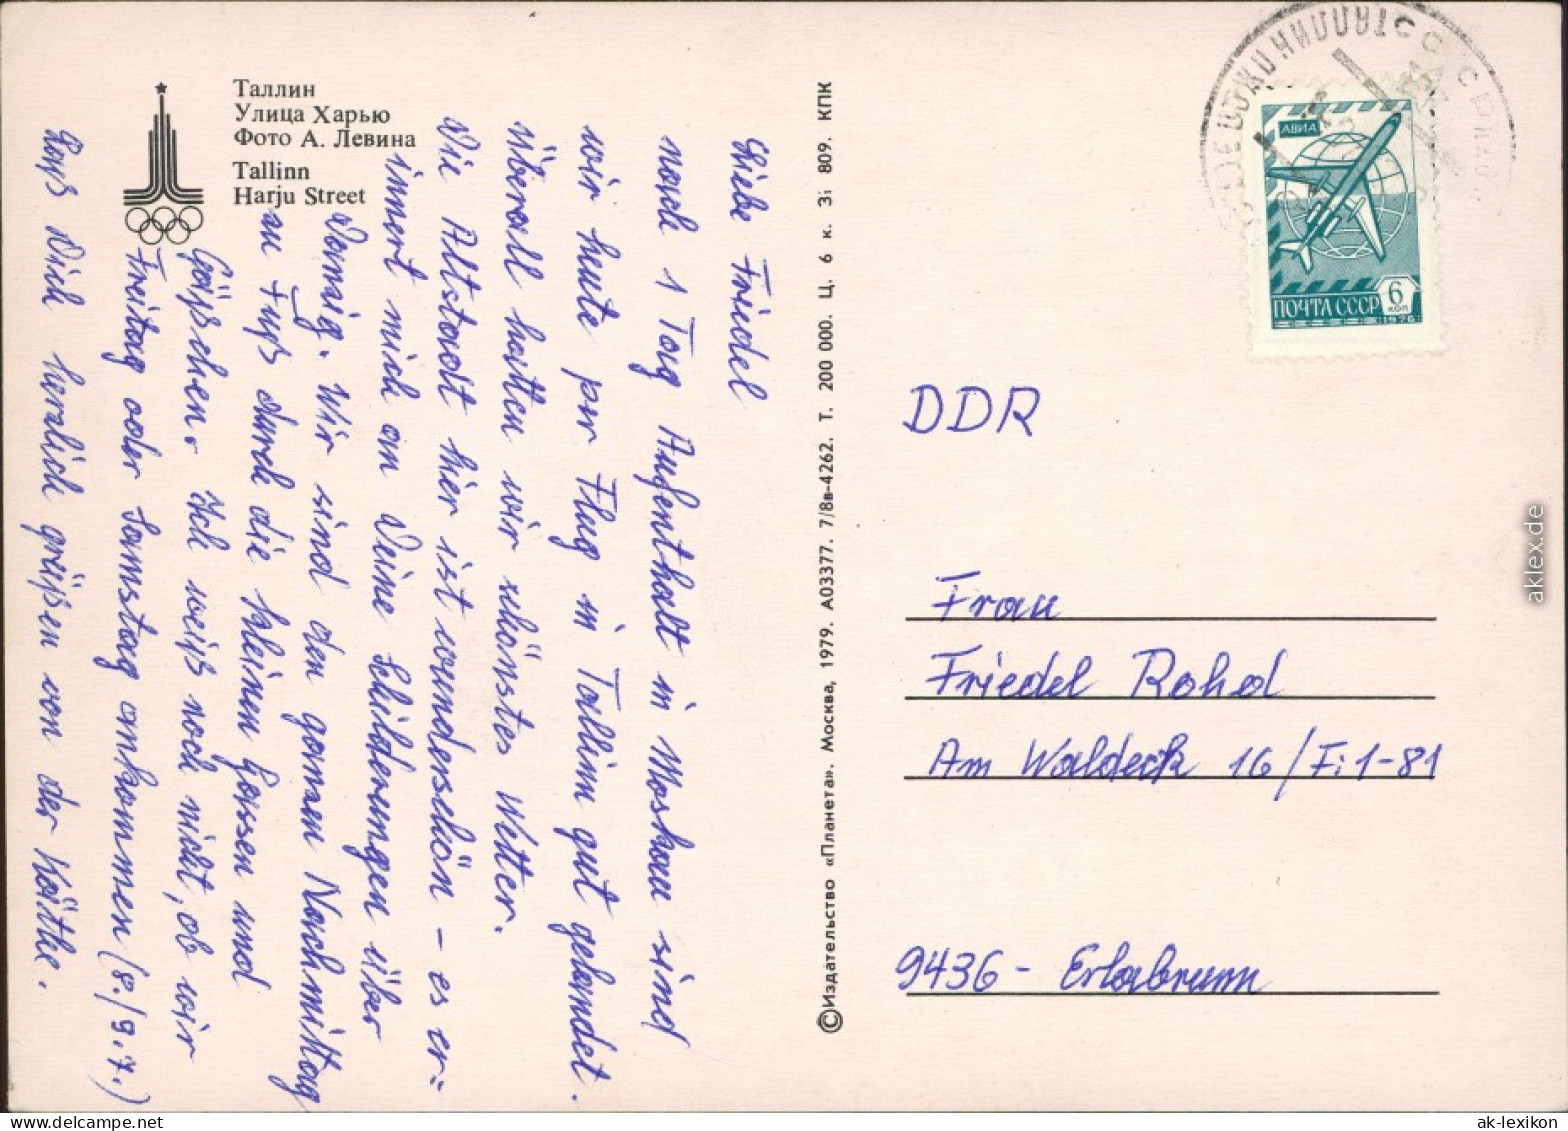 Таллин
Улица Харью
Фото А. Левина
Tallinn
Harju Street
Liebe Friedel
nach 1 Tag Aufenthalt in Moskau sind
wir heute per Flug in Tallinn gut gelandet.
Überall hatten wir schönstes Wetter.
Die Altstadt hier ist wunderschön - es er-
innert mich an Deine Schilderungen über
Danzig. Wir sind den ganzen Nachmittag
zu Fuß durch die kleinen Gassen und
Gäßchen. Ich weiß noch nicht, ob wir
Freitag oder Samstag ankommen (8./9.7.)
Laß Dich herzlich grüßen von der Käthe.
©Издательство «Планета». Москва, 1979. А03377. 7/8в-4262. Т. 200 000. Ц. 6 к. Зі 809. КПК
АВИА
ПОЧТА СССР 6 КОП
1976
DDR
Frau
Friedel Rohd
Am Waldeck 16/Fi1-81
9436 - Erlabrunn
aklex.de
ak-lexikon